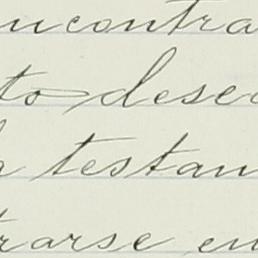 ncontra
to dese
testan
rarse en